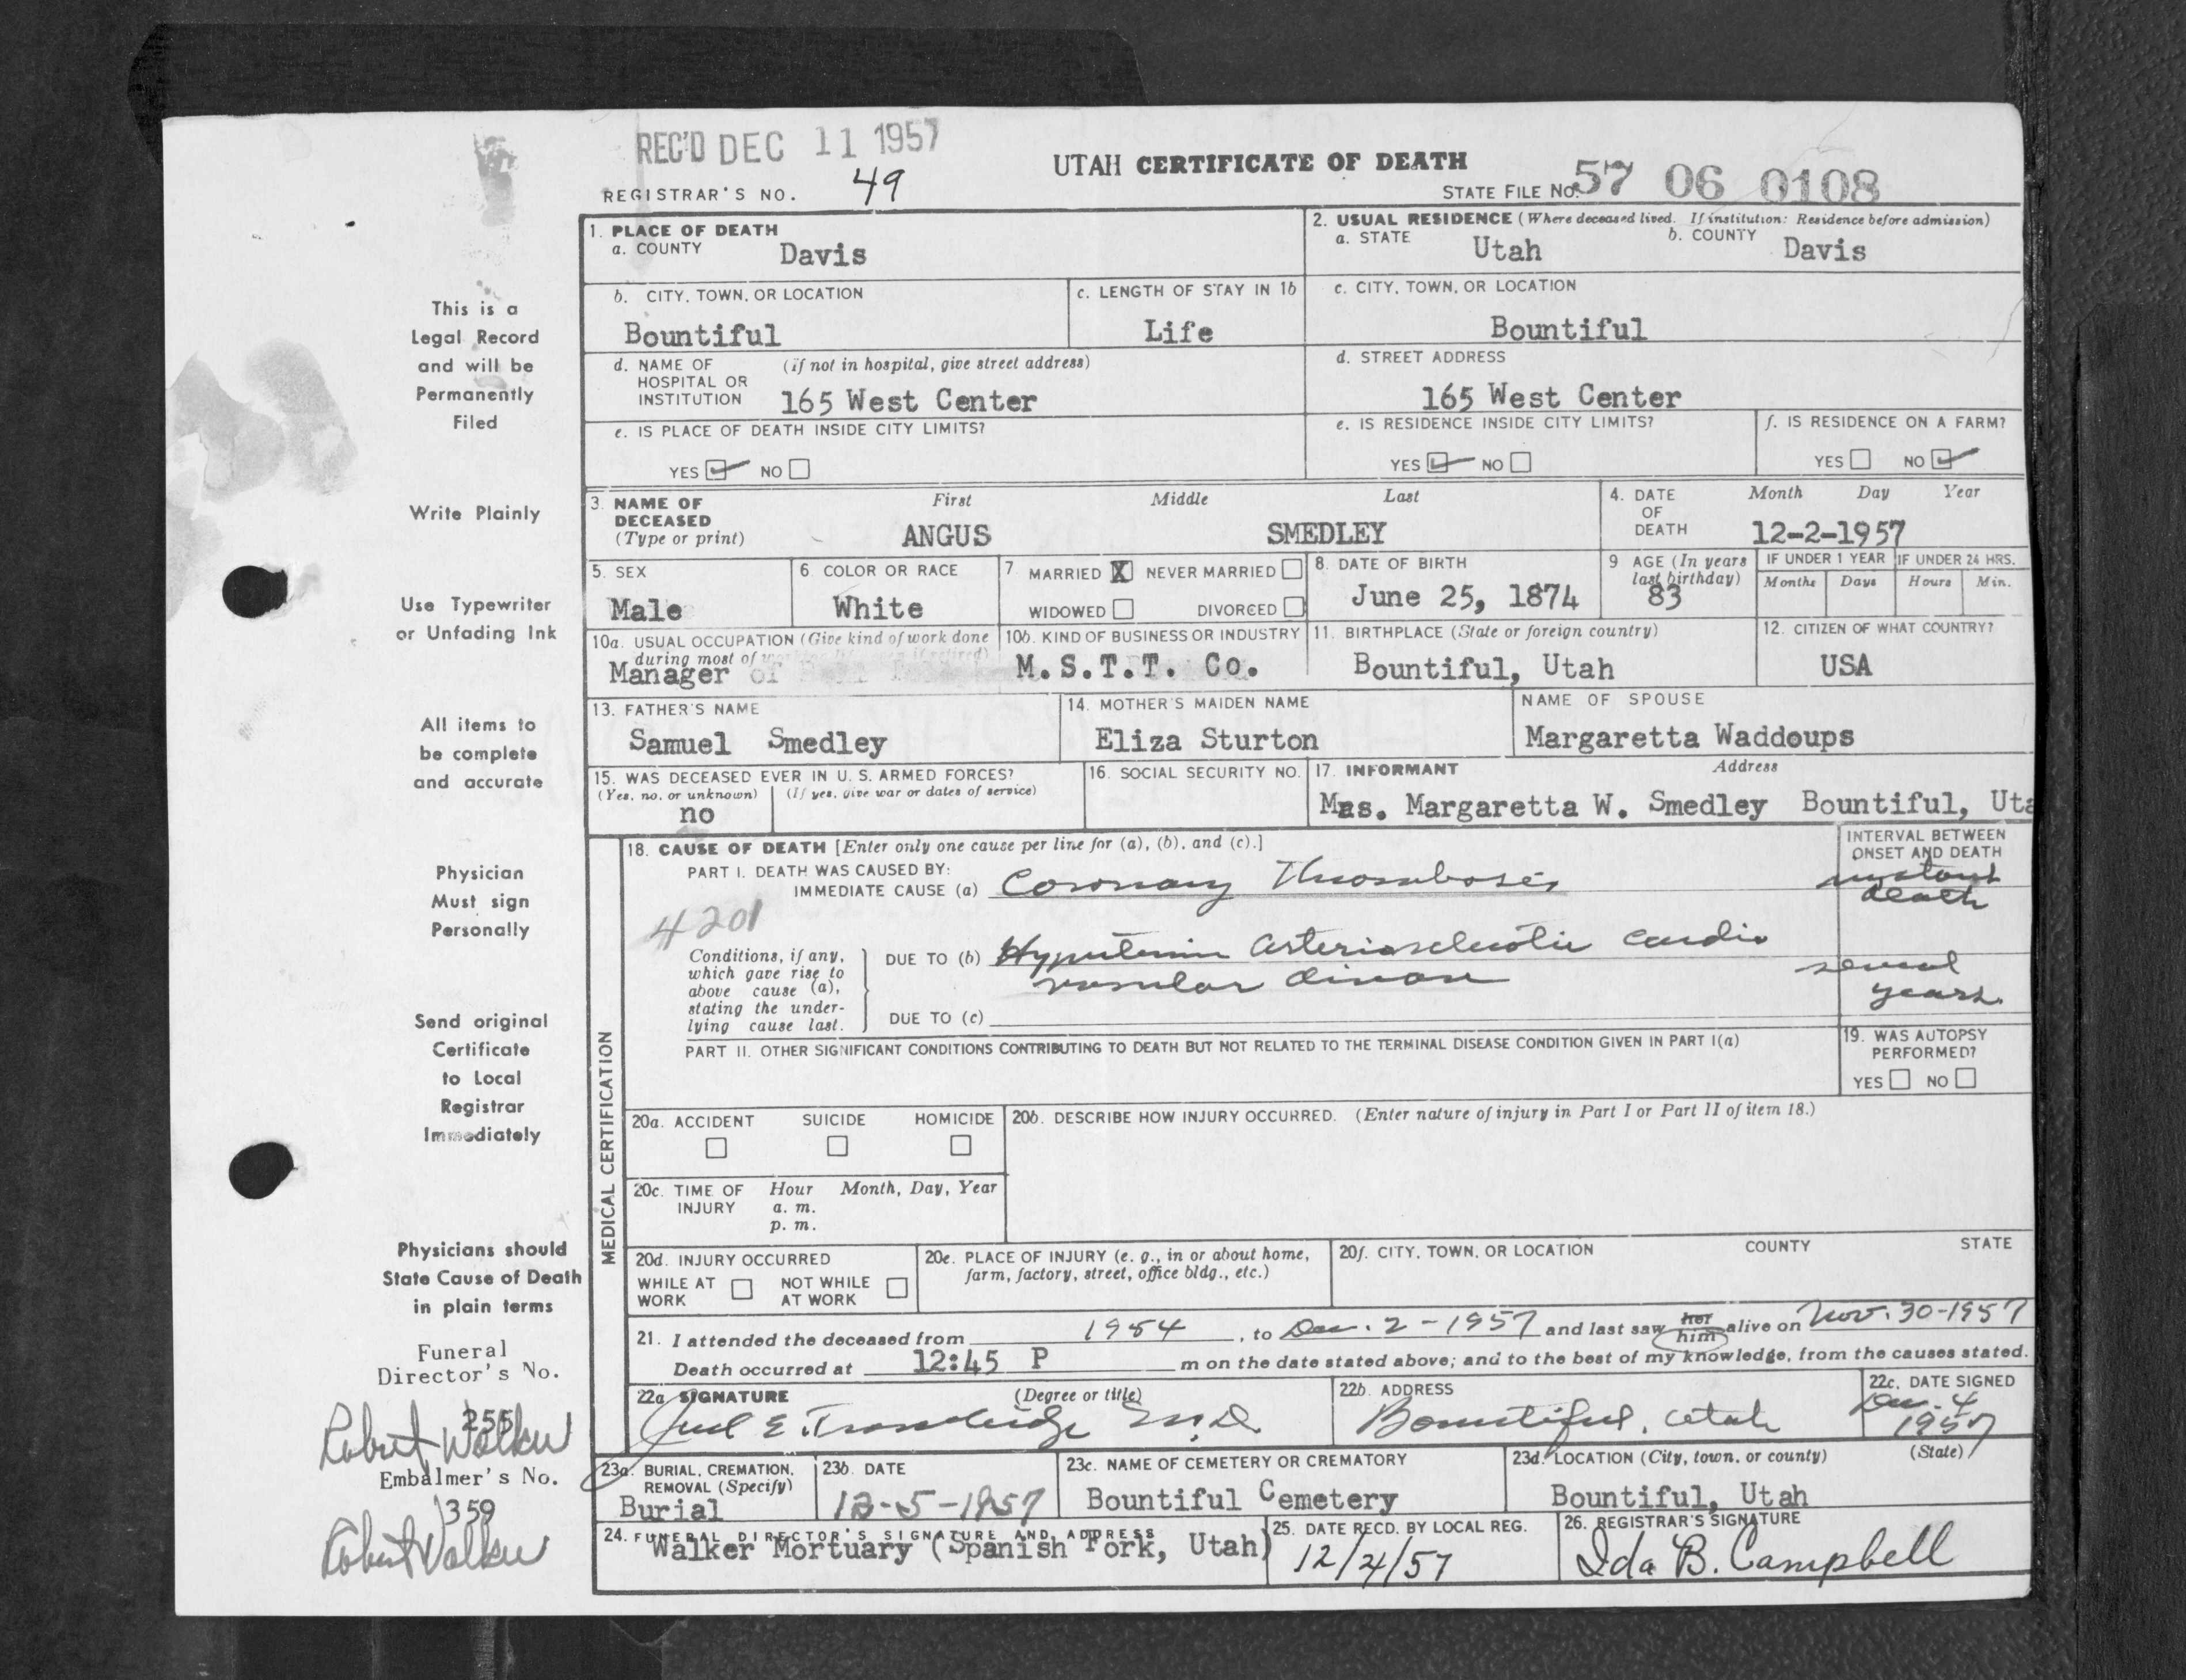 REC'D DEC 11 1957
UTAH CERTIFICATE OF DEATH
REGISTRAR'S NO. 49
STATE FILE NO. 57 06 0108
1. PLACE OF DEATH
a. COUNTY Davis
2. USUAL RESIDENCE (Where deceased lived. If institution: Residence before admission)
a. STATE Utah b. COUNTY Davis
b. CITY, TOWN, OR LOCATION
Bountiful
c. LENGTH OF STAY IN 1b
Life
c. CITY, TOWN, OR LOCATION
Bountiful
d. NAME OF (if not in hospital, give street address)
HOSPITAL OR
INSTITUTION 165 West Center
d. STREET ADDRESS
165 West Center
e. IS PLACE OF DEATH INSIDE CITY LIMITS?
YES NO
e. IS RESIDENCE INSIDE CITY LIMITS?
YES NO
f. IS RESIDENCE ON A FARM?
YES NO
3. NAME OF DECEASED (Type or print)
First Middle Last
ANGUS SMEDLEY
4. DATE OF DEATH
Month Day Year
12-2-1957
5. SEX
Male
6. COLOR OR RACE
White
7. MARRIED X NEVER MARRIED
WIDOWED DIVORCED
8. DATE OF BIRTH
June 25, 1874
9 AGE (In years last birthday)
83
IF UNDER 1 YEAR IF UNDER 24 HRS.
Months Days Hours Min.
10a. USUAL OCCUPATION (Give kind of work done
during most of
Manager of
10b. KIND OF BUSINESS OR INDUSTRY
M.S.T.T. Co.
11. BIRTHPLACE (State or foreign country)
Bountiful, Utah
12. CITIZEN OF WHAT COUNTRY?
USA
13. FATHER'S NAME
Samuel Smedley
14. MOTHER'S MAIDEN NAME
Eliza Sturton
NAME OF SPOUSE
Margaretta Waddoups
15. WAS DECEASED EVER IN U. S. ARMED FORCES?
(Yes, no, or unknown) (If yes, give war or dates of service)
no
16. SOCIAL SECURITY NO.
17. INFORMANT Address
Mrs. Margaretta W. Smedley Bountiful, Uta
MEDICAL CERTIFICATION
18. CAUSE OF DEATH [Enter only one cause per line for (a), (b), and (c).]
INTERVAL BETWEEN
ONSET AND DEATH
PART I. DEATH WAS CAUSED BY:
IMMEDIATE CAUSE (a) Coronary Thrombosis
instant
death
4201
Conditions, if any,
which gave rise to
above cause (a),
stating the under-
lying cause last.
DUE TO (b) Hypertensive arteriosclerotic cardio
vascular disease
several
years.
DUE TO (c)
PART II. OTHER SIGNIFICANT CONDITIONS CONTRIBUTING TO DEATH BUT NOT RELATED TO THE TERMINAL DISEASE CONDITION GIVEN IN PART I(a)
19. WAS AUTOPSY
PERFORMED?
YES NO
20a. ACCIDENT SUICIDE HOMICIDE
20b. DESCRIBE HOW INJURY OCCURRED. (Enter nature of injury in Part I or Part II of item 18.)
20c. TIME OF INJURY
Hour Month, Day, Year
a. m.
p. m.
20d. INJURY OCCURRED
WHILE AT WORK NOT WHILE AT WORK
20e. PLACE OF INJURY (e. g., in or about home,
farm, factory, street, office bldg., etc.)
20f. CITY, TOWN, OR LOCATION COUNTY STATE
21. I attended the deceased from 1954, to Dec. 2-1957 and last saw her him alive on Nov. 30-1957
Death occurred at 12:45 P m on the date stated above; and to the best of my knowledge, from the causes stated.
22a. SIGNATURE (Degree or title)
E. Trowbridge M.D.
22b. ADDRESS
Bountiful, Utah
22c. DATE SIGNED
Dec. 4
1957
23a. BURIAL, CREMATION,
REMOVAL (Specify)
Burial
23b. DATE
12-5-1957
23c. NAME OF CEMETERY OR CREMATORY
Bountiful Cemetery
23d. LOCATION (City, town, or county) (State)
Bountiful, Utah
24. FUNERAL DIRECTOR'S SIGNATURE AND ADDRESS
Walker Mortuary (Spanish Fork, Utah)
25. DATE RECD. BY LOCAL REG.
12/4/57
26. REGISTRAR'S SIGNATURE
Ida B. Campbell
This is a
Legal Record
and will be
Permanently
Filed
Write Plainly
Use Typewriter
or Unfading Ink
All items to
be complete
and accurate
Physician
Must sign
Personally
Send original
Certificate
to Local
Registrar
Immediately
Physicians should
State Cause of Death
in plain terms
Funeral
Director's No.
255
Robert Walker
Embalmer's No.
359
Robert Walker